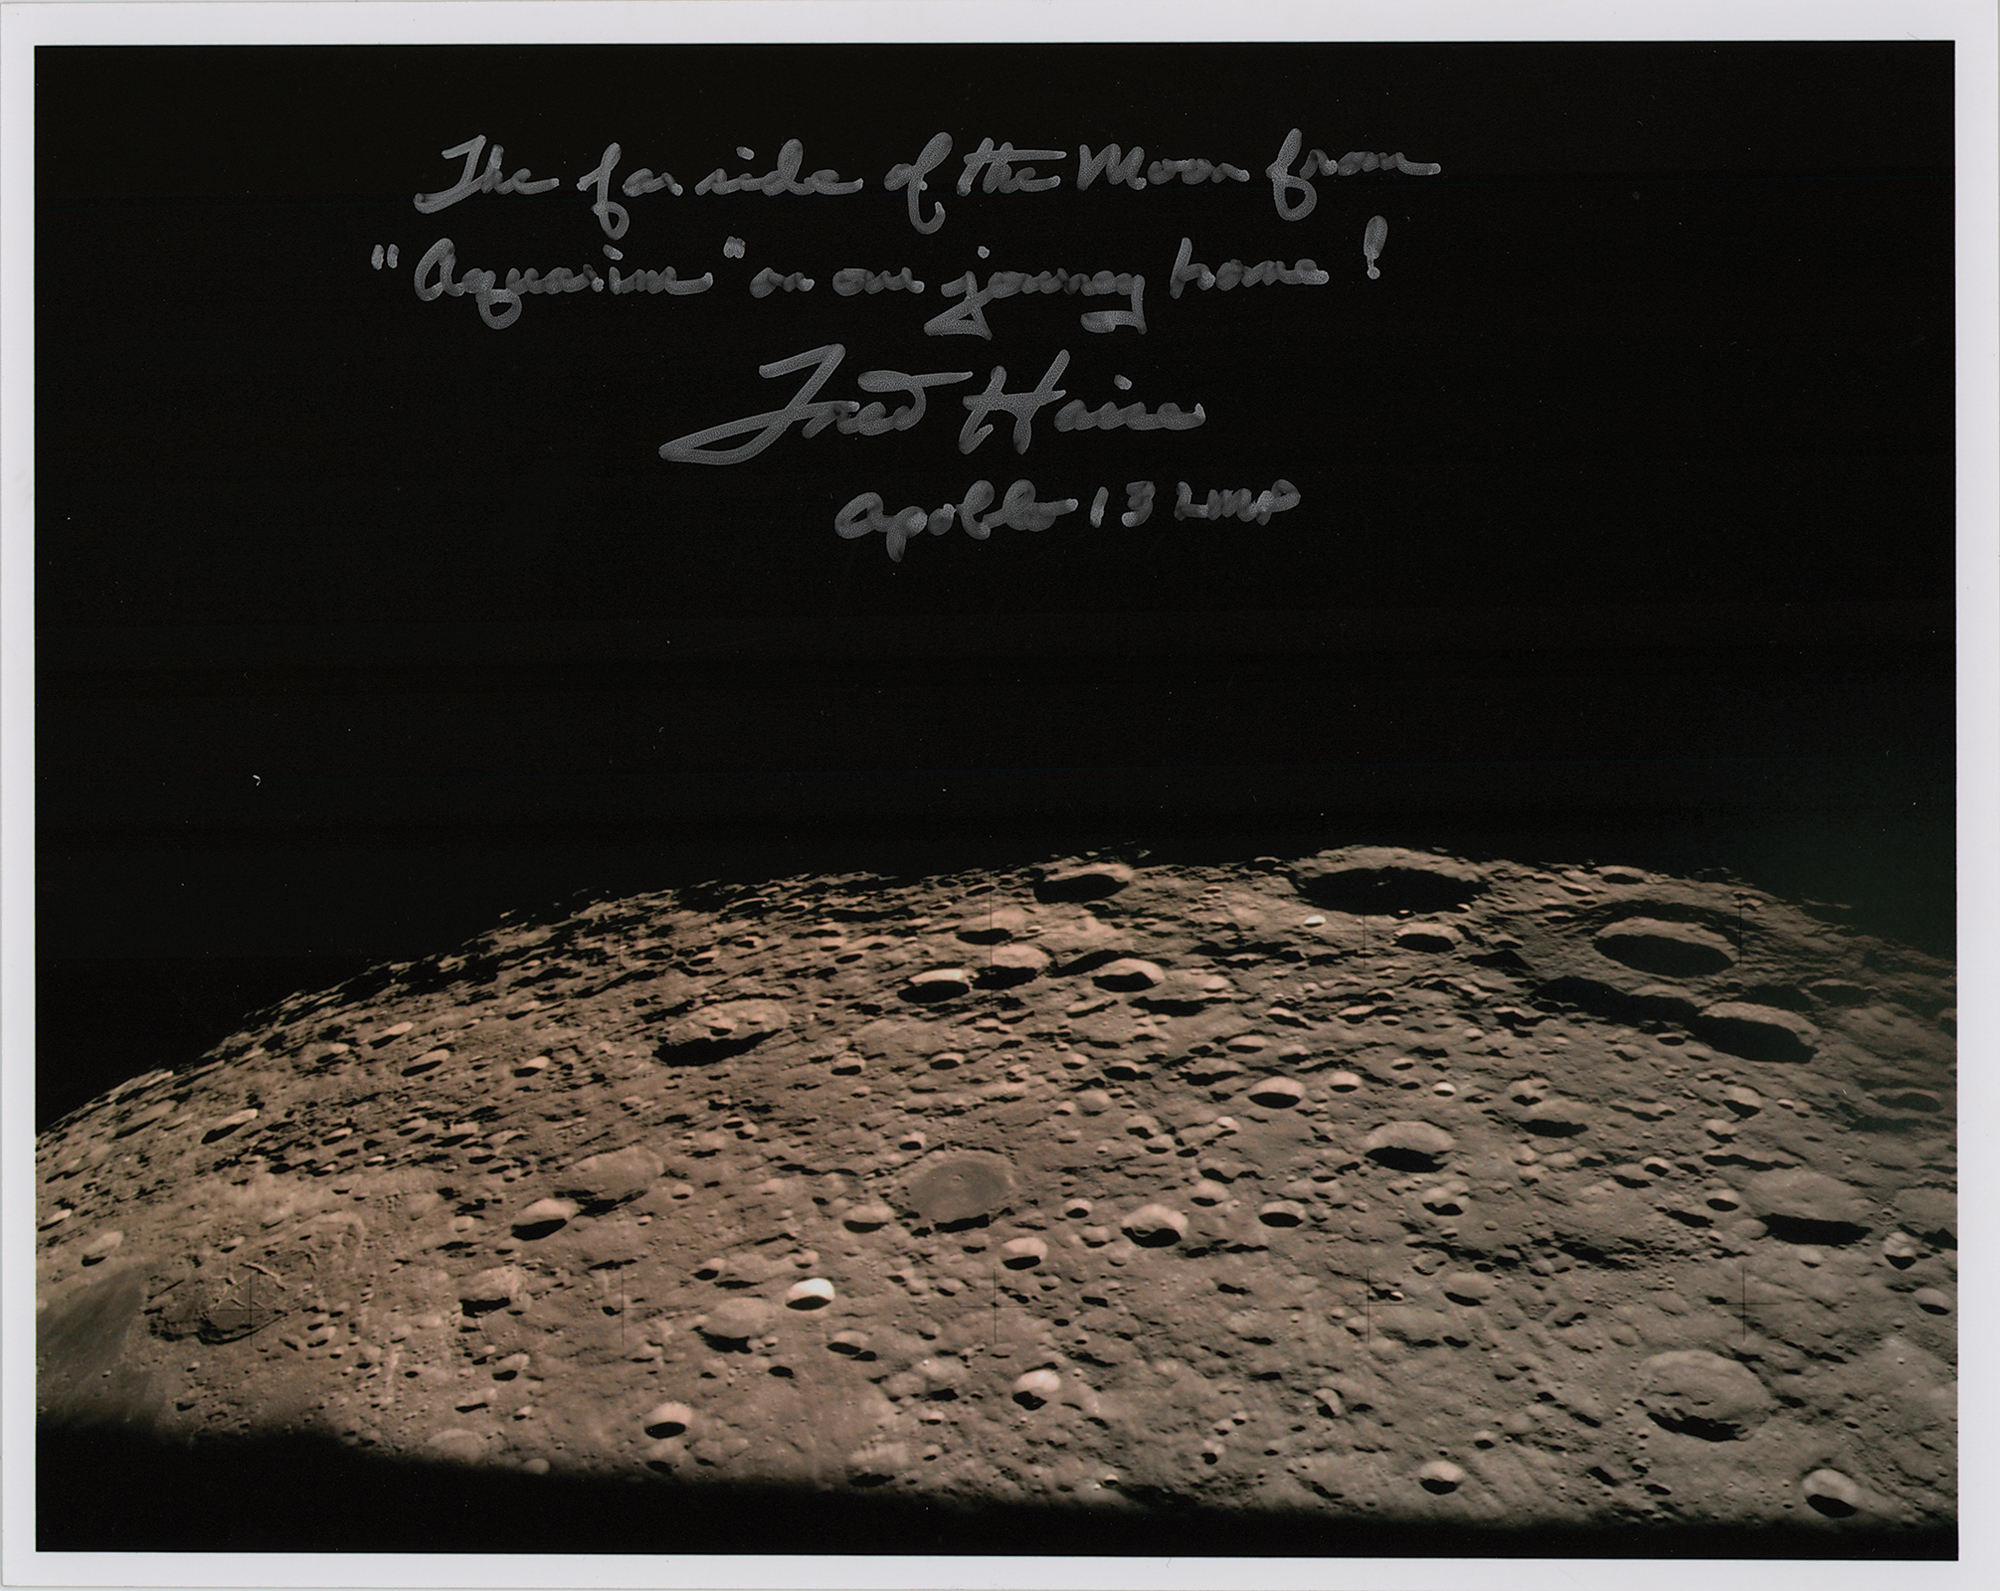 The far side of the Moon from
"Aquarius" on our journey home!
Fred Haise
Apollo 13 LMP